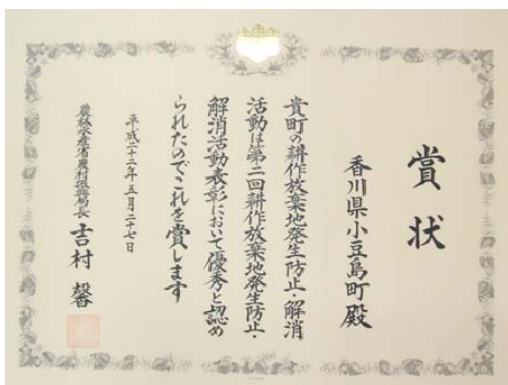 賞状
香川県小豆島町殿
貴町の耕作放棄地発生防止・解消
活動は第二回耕作放棄地発生防止・
解消活動表彰において優秀と認め
られたのでこれを賞します
平成二十二年五月二十七日
農林水産省農村振興局長 吉村馨